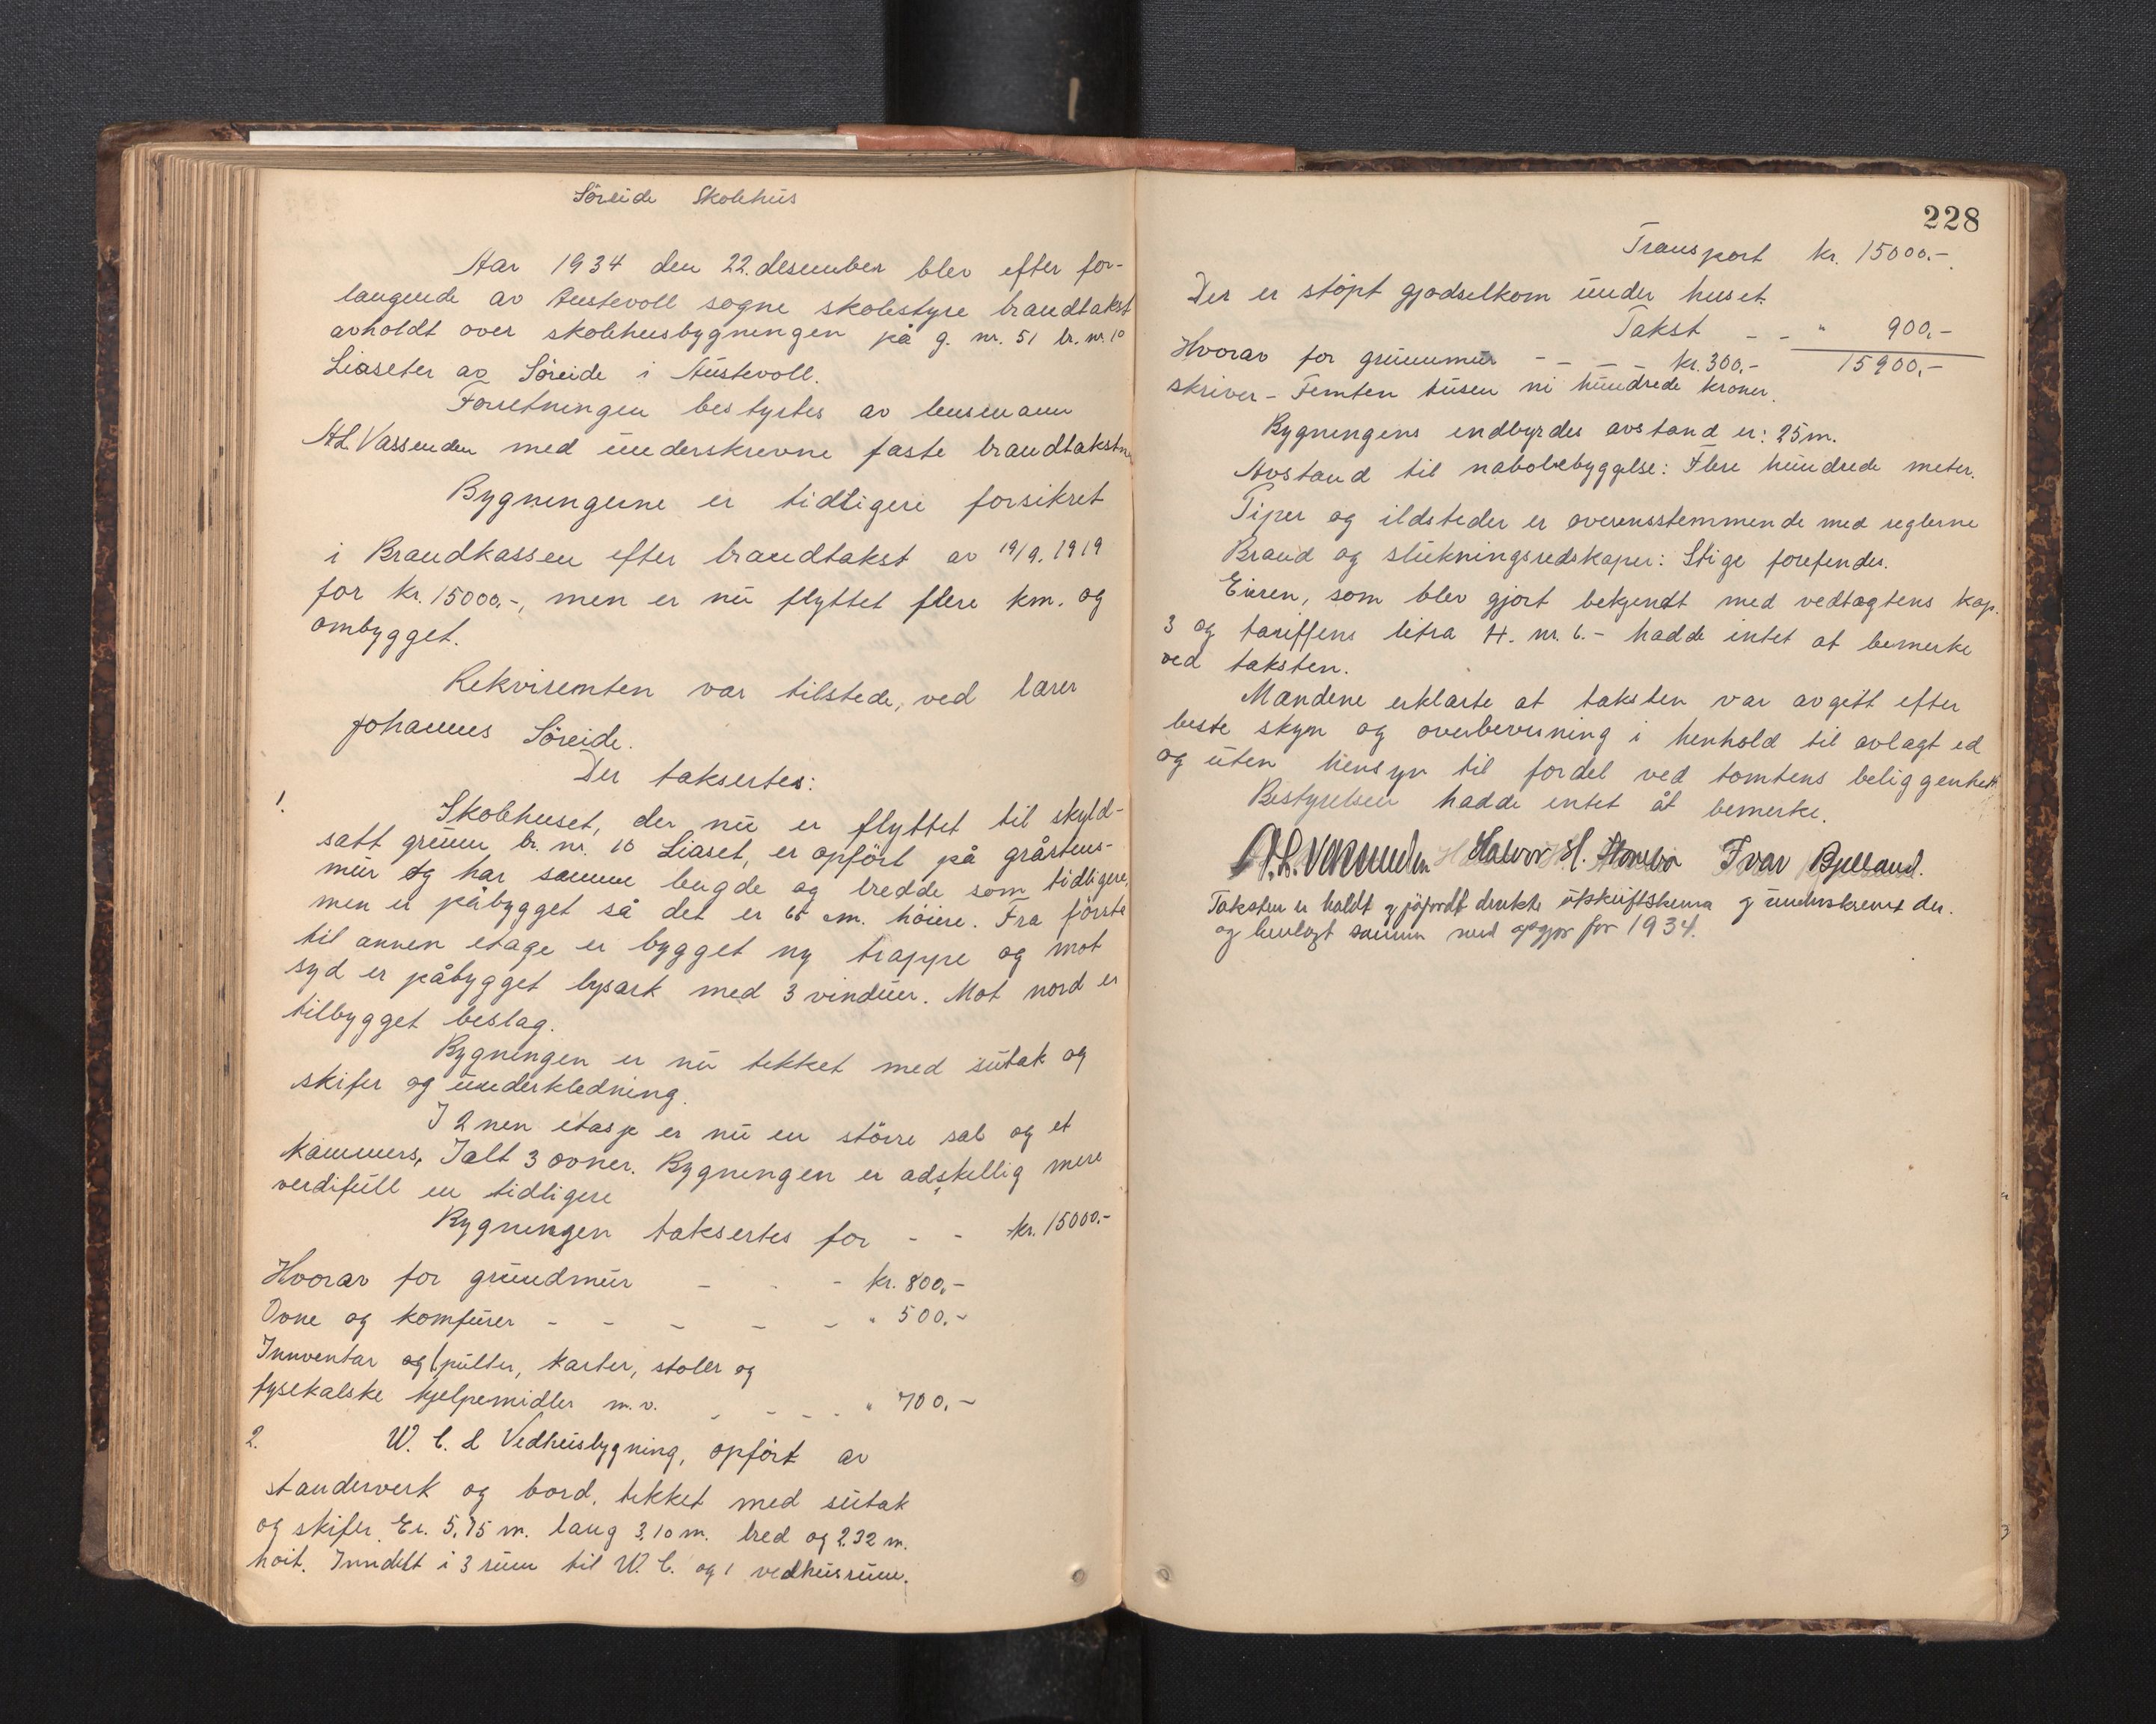 Söreide Skolehus
Aar 1934 den 22. desember blev efter for-
langende av Austevoll sogne skolestyre brandtakst
avholdt over skolehusbygningen på g. nr. 51 br. nr. 10
Liaseter av Söreide i Austevoll.
Forretningen bestyrtes av lensmann
A.L. Vassenden med underskrevne faste brandtakstm
Bygningerne er tidligere forsikret
i Brandkassen efter brandtakst av 19/9. 1919
for kr. 15000.-, men er nu flyttet flere km. og
ombygget.
Rekvirenten var tilstede, ved lærer
Johannes Söreide.
Der taksertes:
1.
Skolehuset, der nu er flyttet til skyld-
satt grunn br. nr. 10 Liaset, er opført på gråstens-
mur og har samme lengde og bredde som tidligere,
men er påbygget så det er 60 cm. höiere. Fra förste
til annen etage er bygget ny trappe og mot
syd er påbygget lysark med 3 vinduer. Mot nord er
tilbygget beslag.
Bygningen er nu tekket med sutak og
skifer og underkledning.
I 2nen etasje er nu en större sal og et
kammers, Ialt 3 ovner. Bygningen er adskillig mere
verdifull en tidligere
Bygningen taksertes for - - kr. 15000.-
Hvorav for grundmur - - - kr. 800,-
Ovne og komfurer - - - - - " 500.-
Innventar og pulter, karter, stoler og
fysekalske hjelpemidler m.v. - - - - " 700.-
2.
W. C. & Vedhusbygning, opfört av
standerverk og bord, tekket med sutak
og skifer. Er. 5,75 m. lang 3,10 m. bred og 2.32 m.
höit. Inndelt i 3 rum til W. C. og 1 vedhusrum.
228
Transport kr. 15000.-
Der er stöpt gjødselkom under huset.
Takst - - " 900,-
Hvorav for grunnmur - - - - kr. 300,- 15900,-
skriver - Femten tusen ni hundrede kroner.
Bygningens endbyrdes avstand er: 25 m.
Avstand til nabobebyggelse: Flere hundrede meter.
Piper og ildsteder er overensstemmende med reglerne
Brand og slukningsredskaper: Stige forefendes.
Eieren, som blev gjort bekjendt med vedtægtens kap.
3 og tariffens litra H. nr. 6.- hadde intet at bemerke
ved taksten.
Mændene erklærte at taksten var avgitt efter
beste skjøn og overbevisning i henhold til avlagt ed
og uten hensyn til fordel ved tomtens beliggenhet.
Bestyrelsen hadde intet åt bemerke.
A. L. Vassenden Halvor H. Ivar Bjelland.
Taksten er holdt og trukte utskriftskema og underskrevet der.
og henlagt sammen med opgjør for 1934.